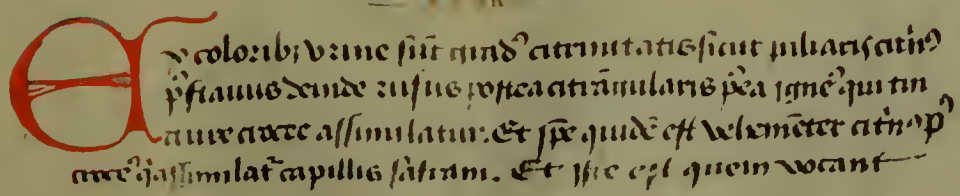 Ex coloribꝰ vrine sūt quidꝰ citrinitatis sicut paliaris citrinꝰ
p̄ flauus deinde rufus postea citrangularis p̄ea igneꝰ qui tin
cture crocee assimulatur. Et ip̄e quidē est vehemēter citrinꝰ pꝰ
croceꝰ q̄ assimilat̄ capillis safram. Et iste est quem vocant